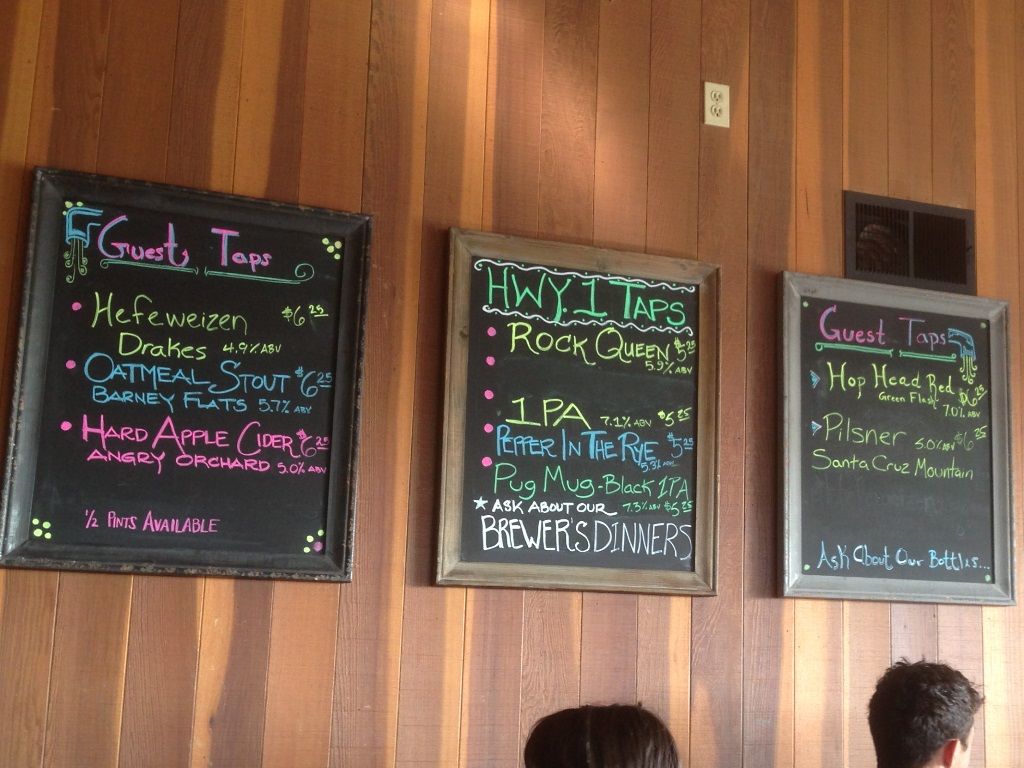 Guest Taps
Hefeweizen $6.25
Drakes 4.9% ABV
Oatmeal Stout $6.25
Barney Flats 5.7% ABV
Hard Apple Cider $6.25
Angry Orchard 5.0% ABV
1/2 Pints Available
HWY. 1 Taps
Rock Queen $5.25
5.9% ABV
IPA 7.1% ABV $5.25
Pepper In The Rye $5.25
5.3% ABV
Pug Mug - Black IPA
7.3% ABV $5.25
★ Ask About Our
Brewer's Dinners
Guest Taps
Hop Head Red $6.25
Green Flash 7.0% ABV
Pilsner 5.0% ABV $6.25
Santa Cruz Mountain
Ask About Our Bottles...